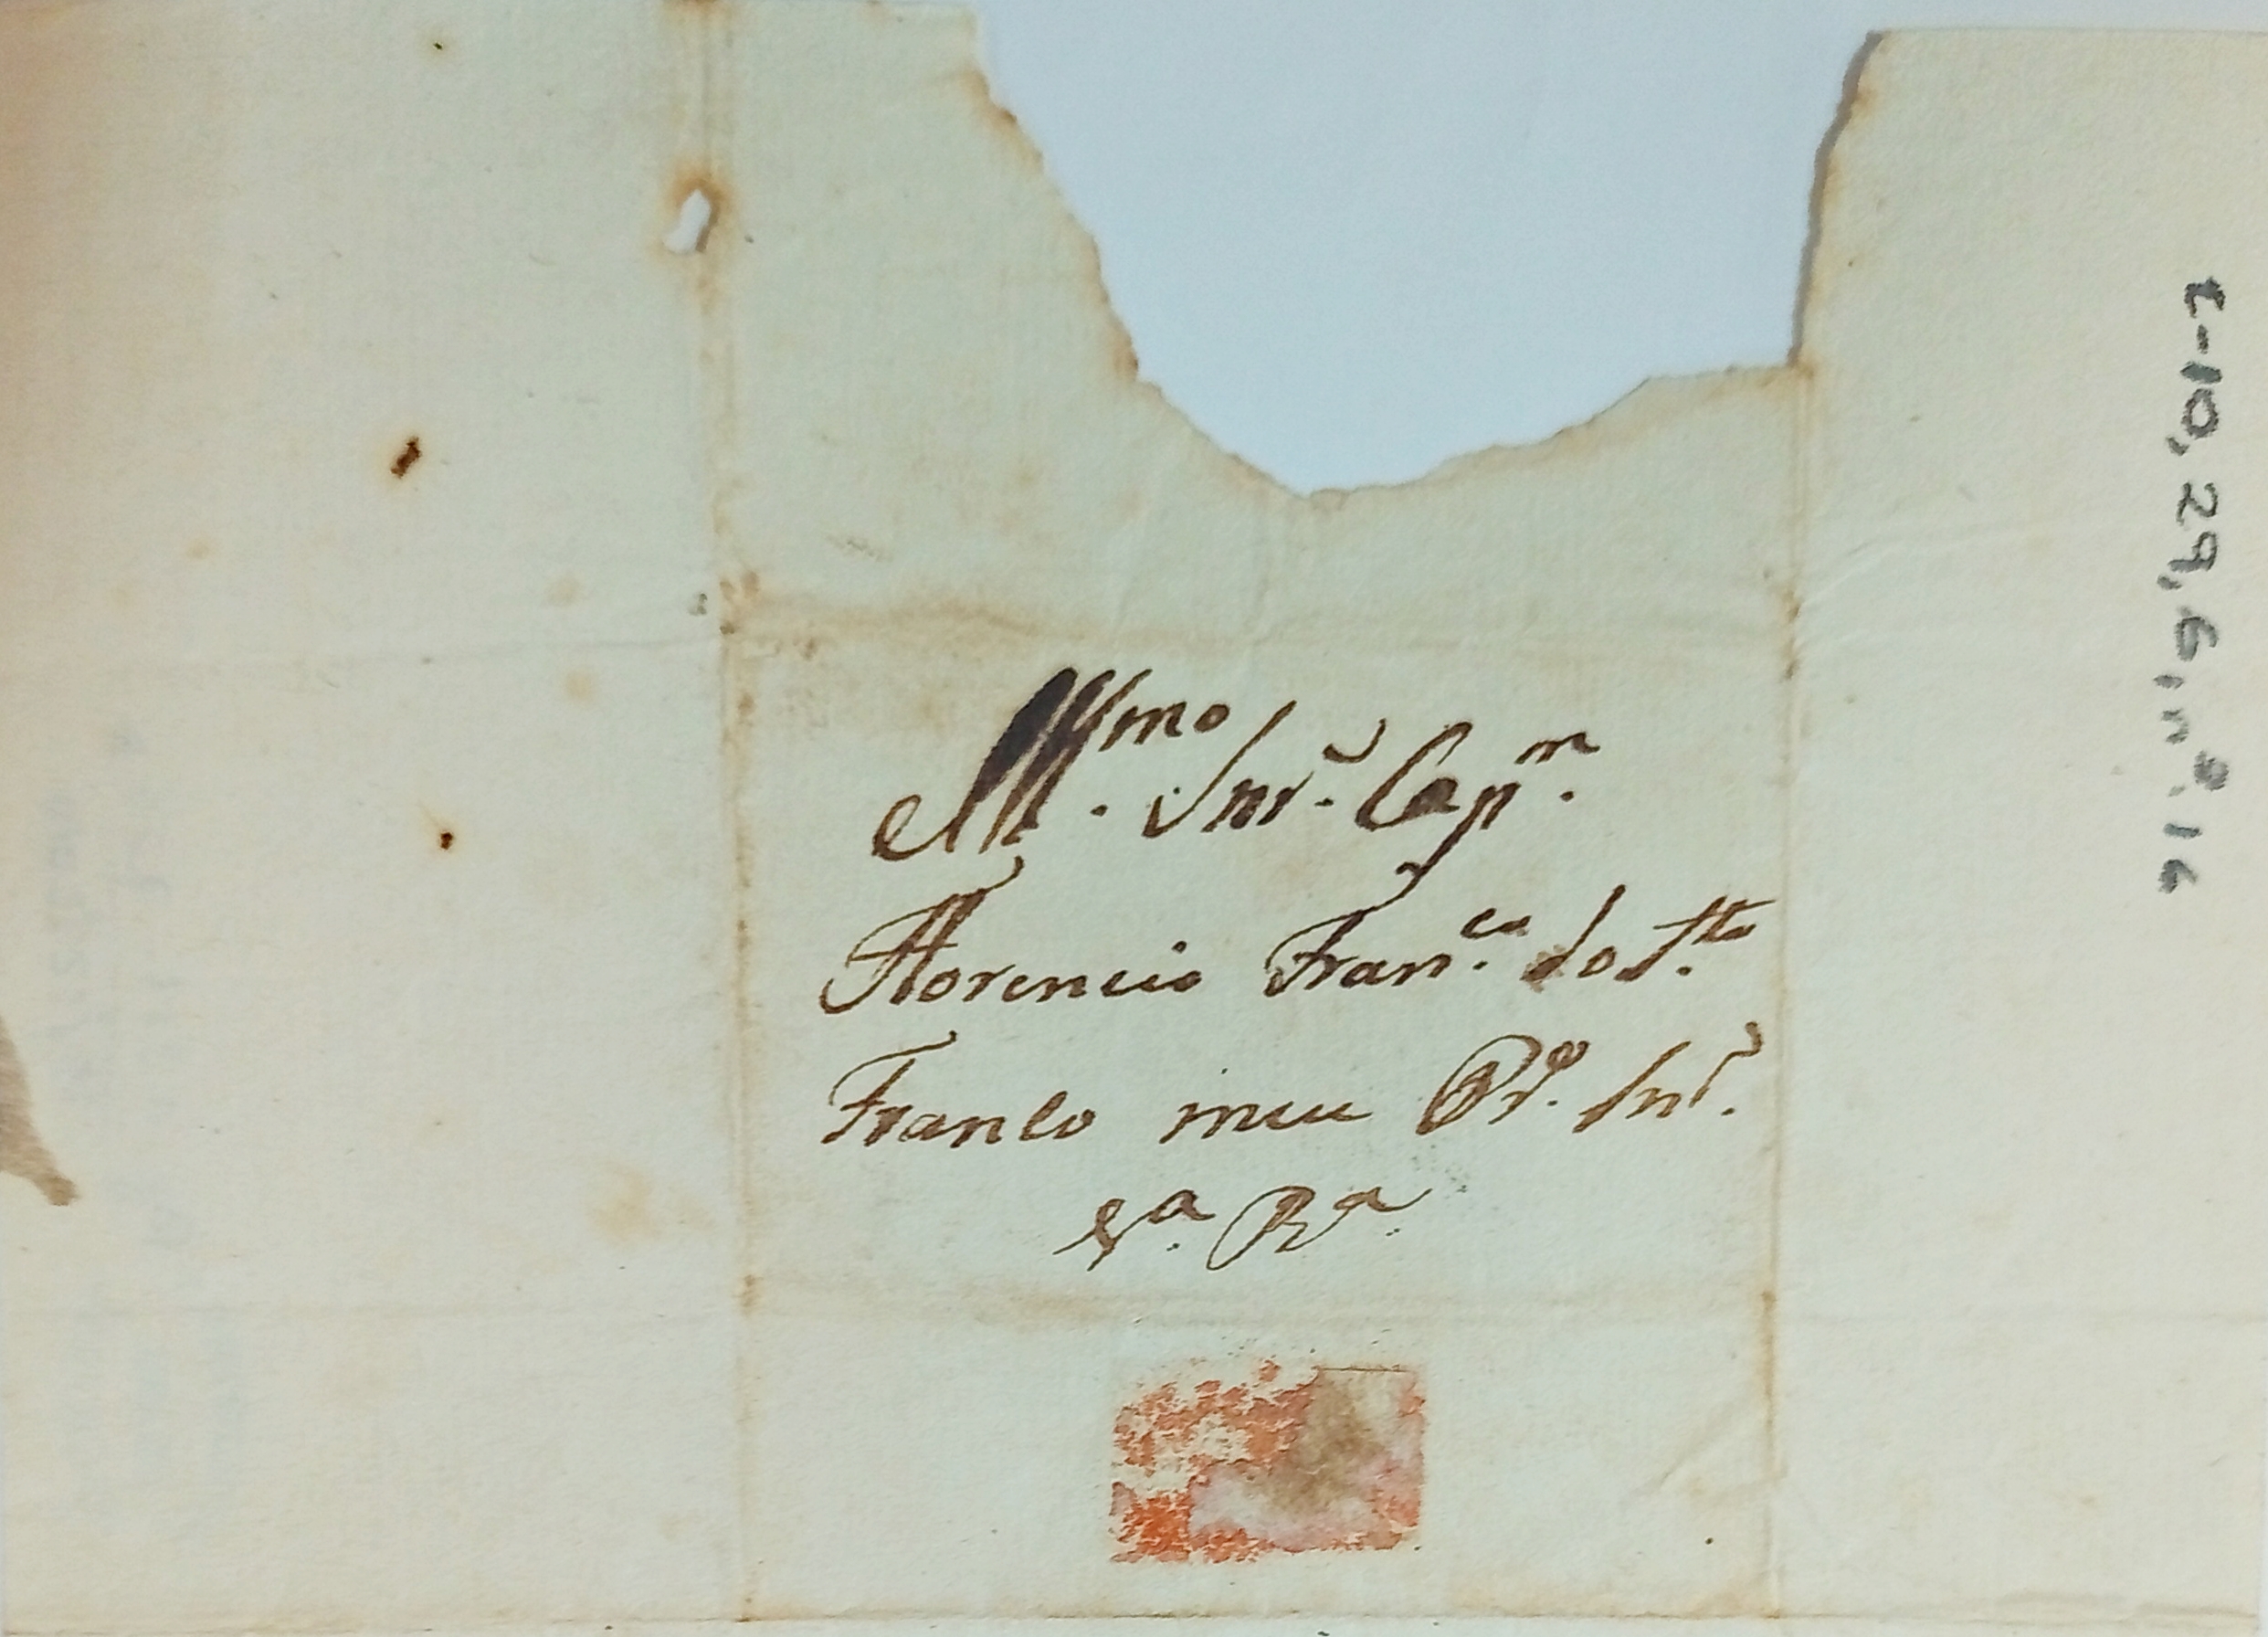 Illmo. Snr. Capm.
Florencio Franco. do Sto.
Franlo meu Pro. Snr.
Va. Ra.
I-10, 29, 6, nº 16